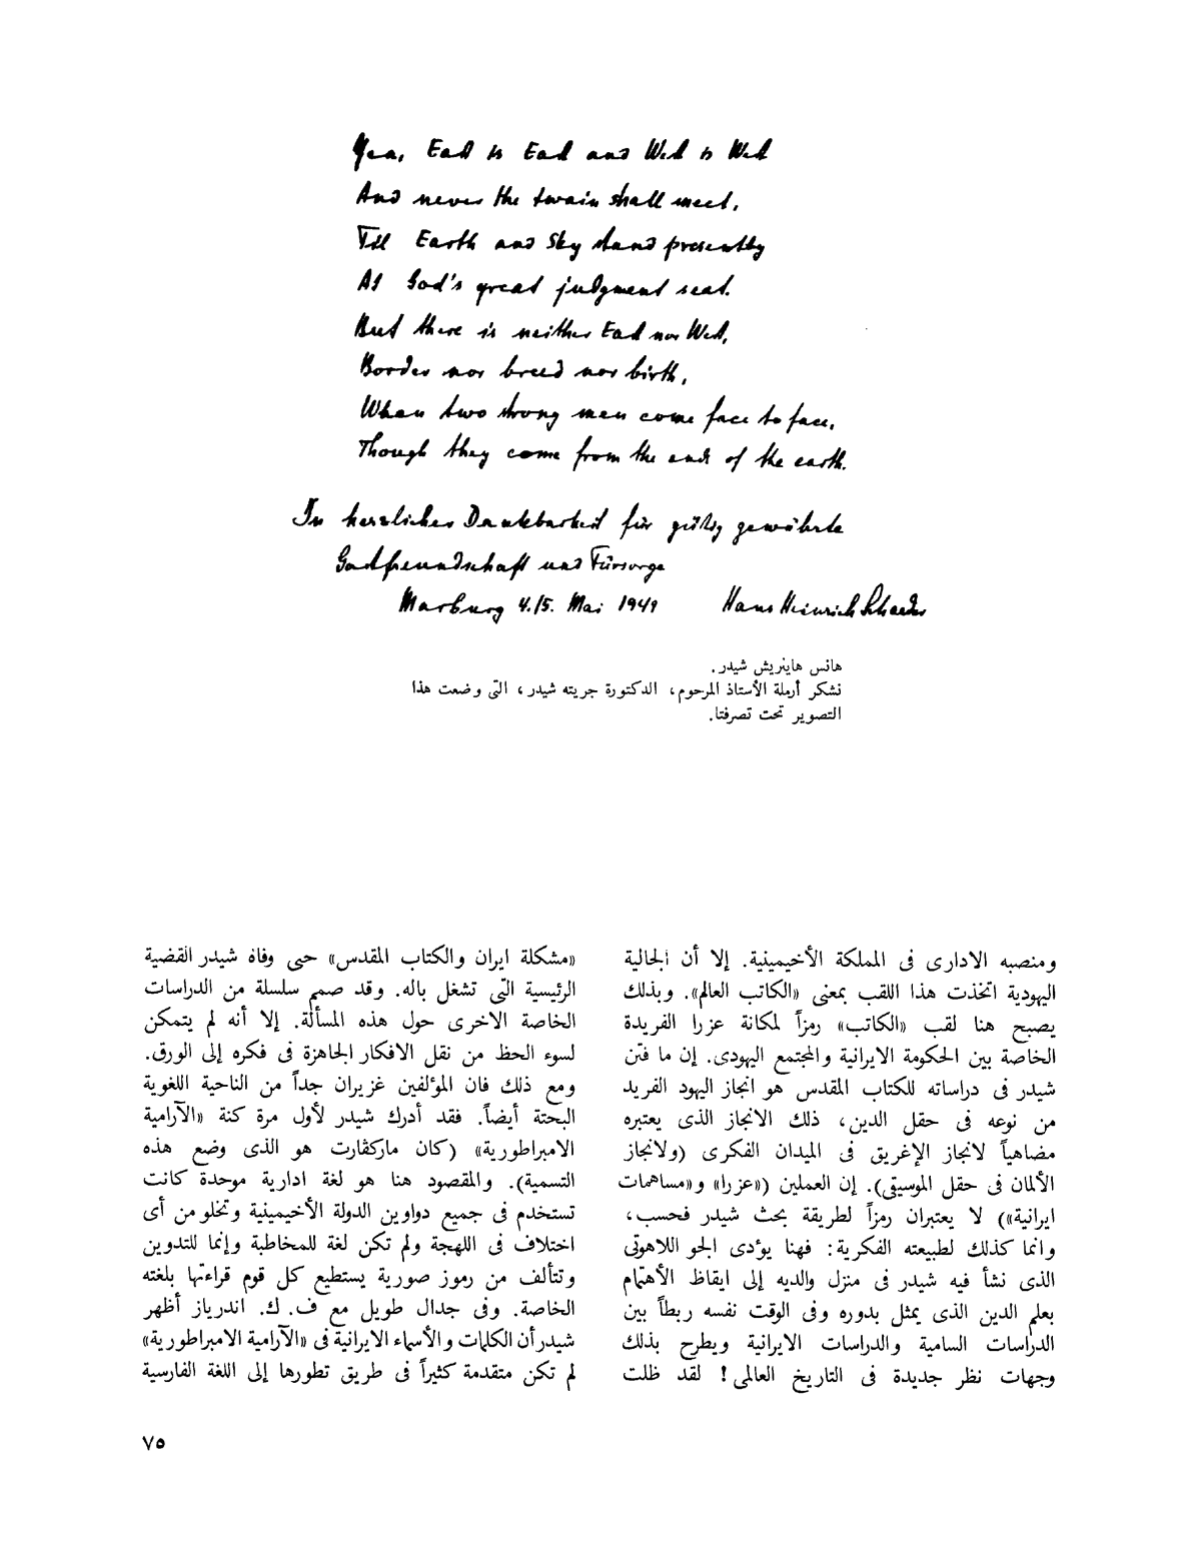 Yea, East is East and West is West
And never the twain shall meet,
Till Earth and Sky stand presently
At God's great judgment seat.
But there is neither East nor West,
Border nor breed nor birth,
When two strong men come face to face,
Though they come from the ends of the earth.
In herzlicher Dankbarkeit für gütig gewährte
Gastfreundschaft und Fürsorge
Marburg 4./5. Mai 1949 Hans Heinrich Schaeder
هانس هاينريش شيدر.
نشكر أرملة الأستاذ المرحوم، الدكتورة جريته شيدر، التى وضعت هذا
التصوير تحت تصرفتا.
ومنصبه الادارى فى المملكة الأخيمينية. إلا أن الجالية
اليهودية اتخذت هذا اللقب بمعنى «الكاتب العالم». وبذلك
يصبح هنا لقب «الكاتب» رمزاً لمكانة عزرا الفريدة
الخاصة بين الحكومة الايرانية والمجتمع اليهودى. إن ما فتن
شيدر فى دراساته للكتاب المقدس هو انجاز اليهود الفريد
من نوعه فى حقل الدين، ذلك الانجاز الذى يعتبره
مضاهياً لانجاز الإغريق فى الميدان الفكرى (ولانجاز
الألمان فى حقل الموسيقى). إن العملين («عزرا» و«مساهمات
ايرانية») لا يعتبران رمزاً لطريقة بحث شيدر فحسب،
وانما كذلك لطبيعته الفكرية: فهنا يؤدى الجو اللاهوتى
الذى نشأ فيه شيدر فى منزل والديه إلى ايقاظ الأهتمام
بعلم الدين الذى يمثل بدوره وفى الوقت نفسه ربطاً بين
الدراسات السامية والدراسات الايرانية ويطرح بذلك
وجهات نظر جديدة فى التاريخ العالمى! لقد ظلت
«مشكلة ايران والكتاب المقدس» حتى وفاة شيدر القضية
الرئيسية التّى تشغل باله. وقد صمم سلسلة من الدراسات
الخاصة الاخرى حول هذه المسألة. إلا أنه لم يتمكن
لسوء الحظ من نقل الافكار الجاهزة فى فكره إلى الورق.
ومع ذلك فان المؤلفين غزيران جداً من الناحية اللغوية
البحتة أيضاً. فقد أدرك شيدر لأول مرة كنة «الآرامية
الامبراطورية» (كان ماركڤارت هو الذى وضع هذه
التسمية). والمقصود هنا هو لغة ادارية موحدة كانت
تستخدم فى جميع دواوين الدولة الأخيمينية وتخلو من أى
اختلاف فى اللهجة ولم تكن لغة للمخاطبة وإنما للتدوين
وتتألف من رموز صورية يستطيع كل قوم قراءتها بلغته
الخاصة. وفى جدال طويل مع ف. ك. اندرياز أظهر
شيدر أن الكلمات والأسماء الايرانية فى «الآرامية الامبراطورية»
لم تكن متقدمة كثيراً فى طريق تطورها إلى اللغة الفارسية
٧٥